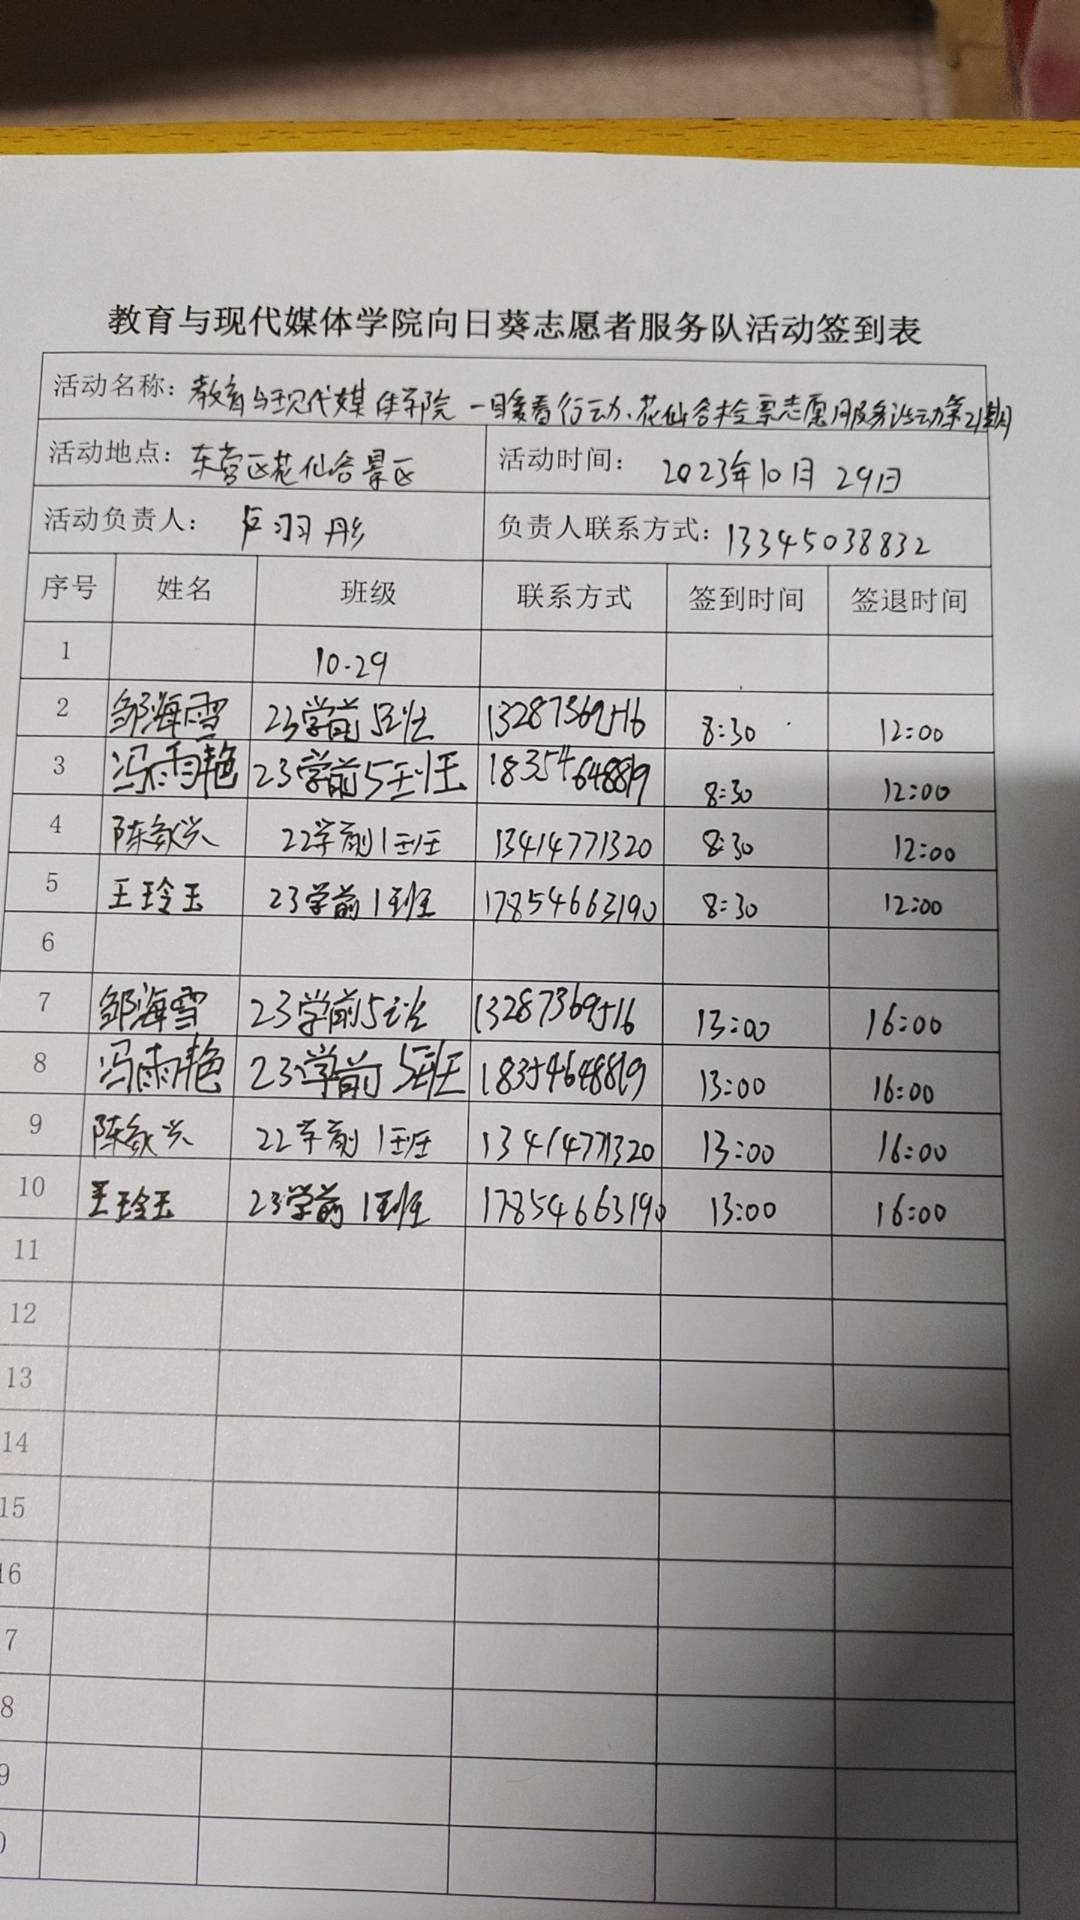 教育与现代媒体学院向日葵志愿者服务队活动签到表
活动名称：教育与现代媒体学院 行动、花仙谷检票志愿服务活动第21期
活动地点：东营区花仙谷景区 活动时间：2023年10月29日
活动负责人：卢羽彤 负责人联系方式：13345038832
序号 姓名 班级 联系方式 签到时间 签退时间
1 10.29
2 邹海雪 23学前5班 13287369516 8:30 12:00
3 冯雨艳 23学前5班 18354648819 8:30 12:00
4 陈 兴 22学前1班 13414771320 8:30 12:00
5 王玲玉 23学前1班 17854663190 8:30 12:00
6
7 邹海雪 23学前5班 13287369516 13:00 16:00
8 冯雨艳 23学前5班 18354648819 13:00 16:00
9 陈 兴 22学前1班 13414771320 13:00 16:00
10 王玲玉 23学前1班 17854663190 13:00 16:00
11
12
13
14
15
16
7
8
9
0